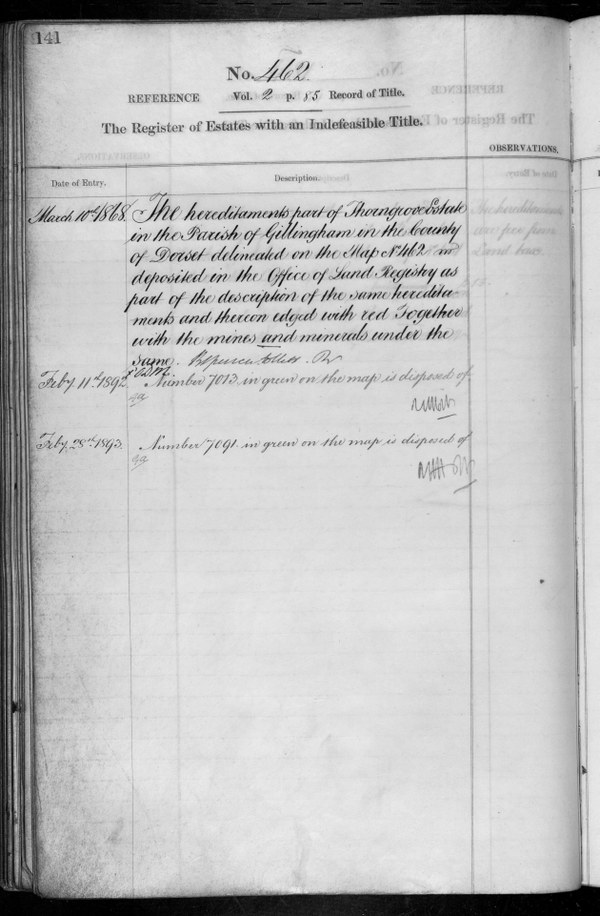 141
No. 462
REFERENCE Vol. 2 p. 15 Record of Title.
The Register of Estates with an Indefeasible Title.
OBSERVATIONS.
Date of Entry.
Description.
March 10th 1868.
The hereditaments part of Thorngrove Estate
in the Parish of Gillingham in the County
of Dorset delineated on the Map No 462
deposited in the Office of Land Registry as
part of the description of the same heredita-
ments and thereon edged with red Together
with the mines and minerals under the
same.
Feby. 11th 1892
Number 7013 in green on the map is disposed of
Feby. 28th 1893.
Number 7091 in green on the map is disposed of